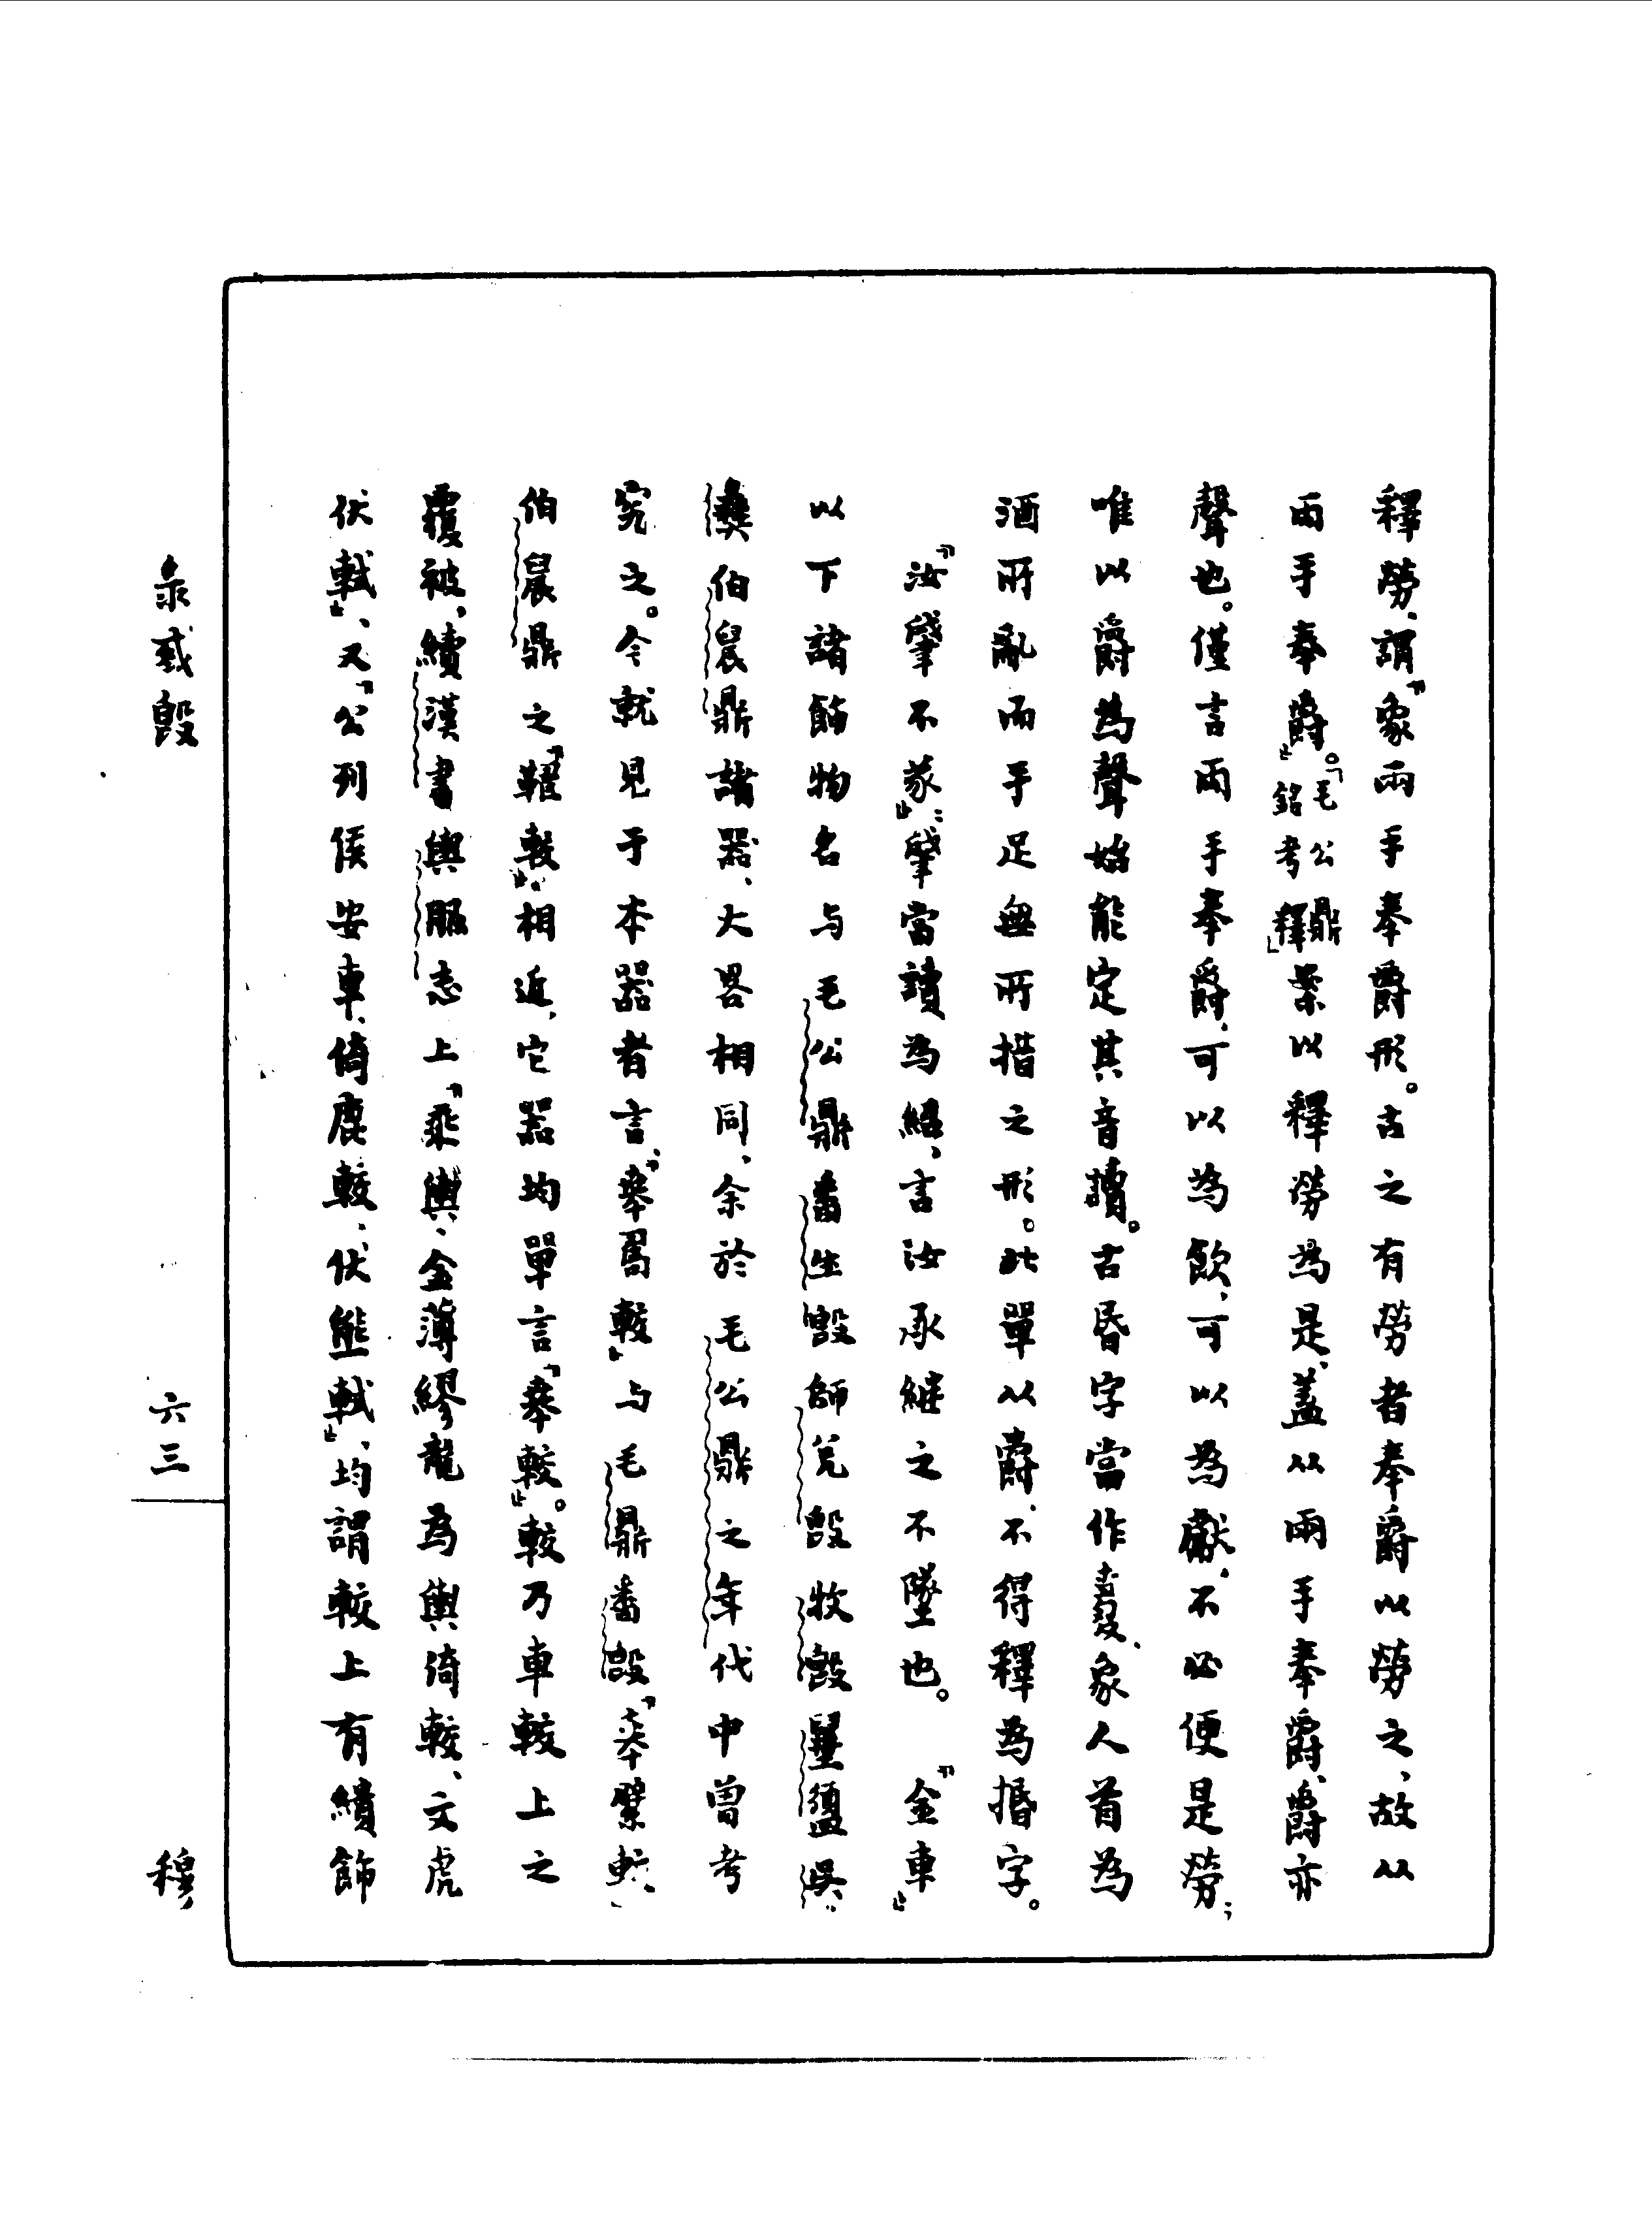 釋勞，謂『象兩手奉爵形。古之有勞者奉爵以勞之，故从
兩手奉爵』。「毛公鼎銘考釋」案以釋勞為是，蓋从兩手奉爵，爵亦
聲也。僅言兩手奉爵，可以為飲，可以為獻，不必便是勞；
唯以爵為聲始能定其音讀。古昏字當作，象人首為
酒所亂而手足無所措之形。此單从爵，不得釋為揩字。
『汝肈不彖』：肈當讀為紹，言汝承繼之不墜也。　『金車』
以下諸飾物名与毛公鼎番生𣪘師兌𣪘牧𣪘盨吳
彝伯晨鼎諸器，大畧相同，余於毛公鼎之年代中曾考
究之。今就見于本器者言，『較』与毛鼎番𣪘『較』、
伯晨鼎之『較』，相近，它器均單言『較』。較乃車較上之
覆被，續漢書輿服志上『乘輿，金薄繆龍為輿倚較，文虎
伏軾』，又『公列侯安車，倚鹿較，伏熊軾』，均謂較上有繢飾
彔𢦚𣪘
六三
穆